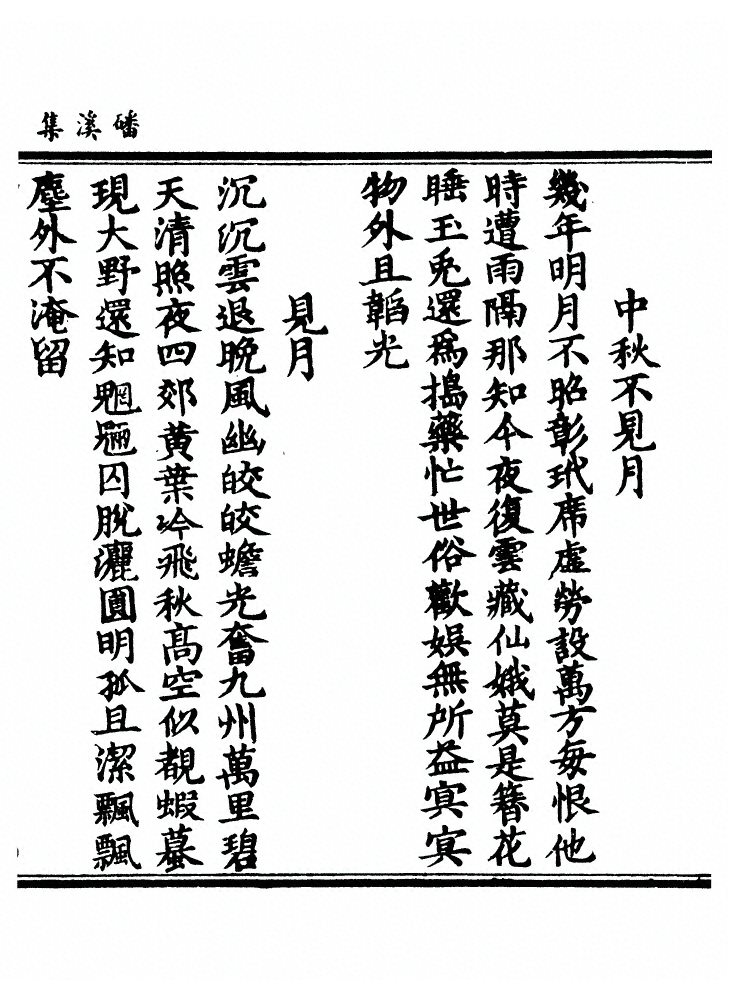 磻溪集
中秋不見月
幾年明月不昭彰玳席虛勞設萬方每恨他
時遭雨隔那知今夜復雲藏仙娥莫是簪花
睡玉兎還爲搗藥忙世俗歡娛無所益㝠㝠
物外且韜光
見月
沉沉雲退晚風幽皎皎蟾光奮九州萬里碧
天清照夜四郊黄葉冷飛秋髙空似覩蝦蟇
現大野還知魍魎囚脫灑圓明孤且潔飄飄
塵外不淹留